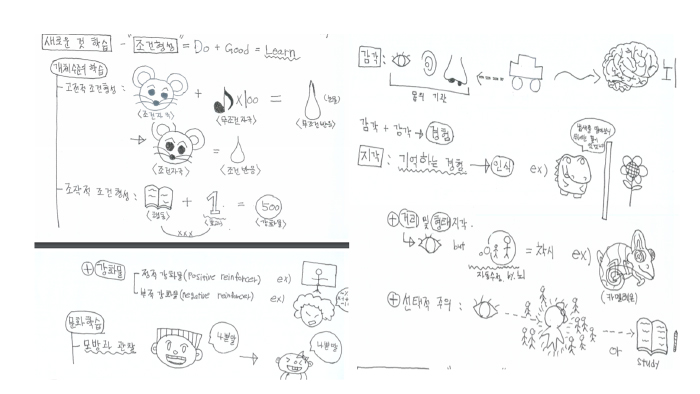 새로운 것 학습 - "조건형성" = Do + Good = Learn
개체수준의 학습
고전적 조건형성 :
+ x100 =
<조건자극> <무조건자극> <무조건반응>
=
<조건자극> <조건반응>
조작적 조건형성 : + 1 = 500
<행동> <강화물>
xxx
+ 강화물
정적 강화물 (Positive reinforcer) ex)
부적 강화물 (negative reinforcer) ex)
모방과 관찰
나쁜말
나쁜말
감각 :
뇌
몸의 기관
감각 + 감각 → 경험
지각 : 기억하는 경험 → 인식 ex)
+ 거리 및 형태지각.
but = 착시 ex)
(카멜레온)
+ 선택적 주의 :
or
study